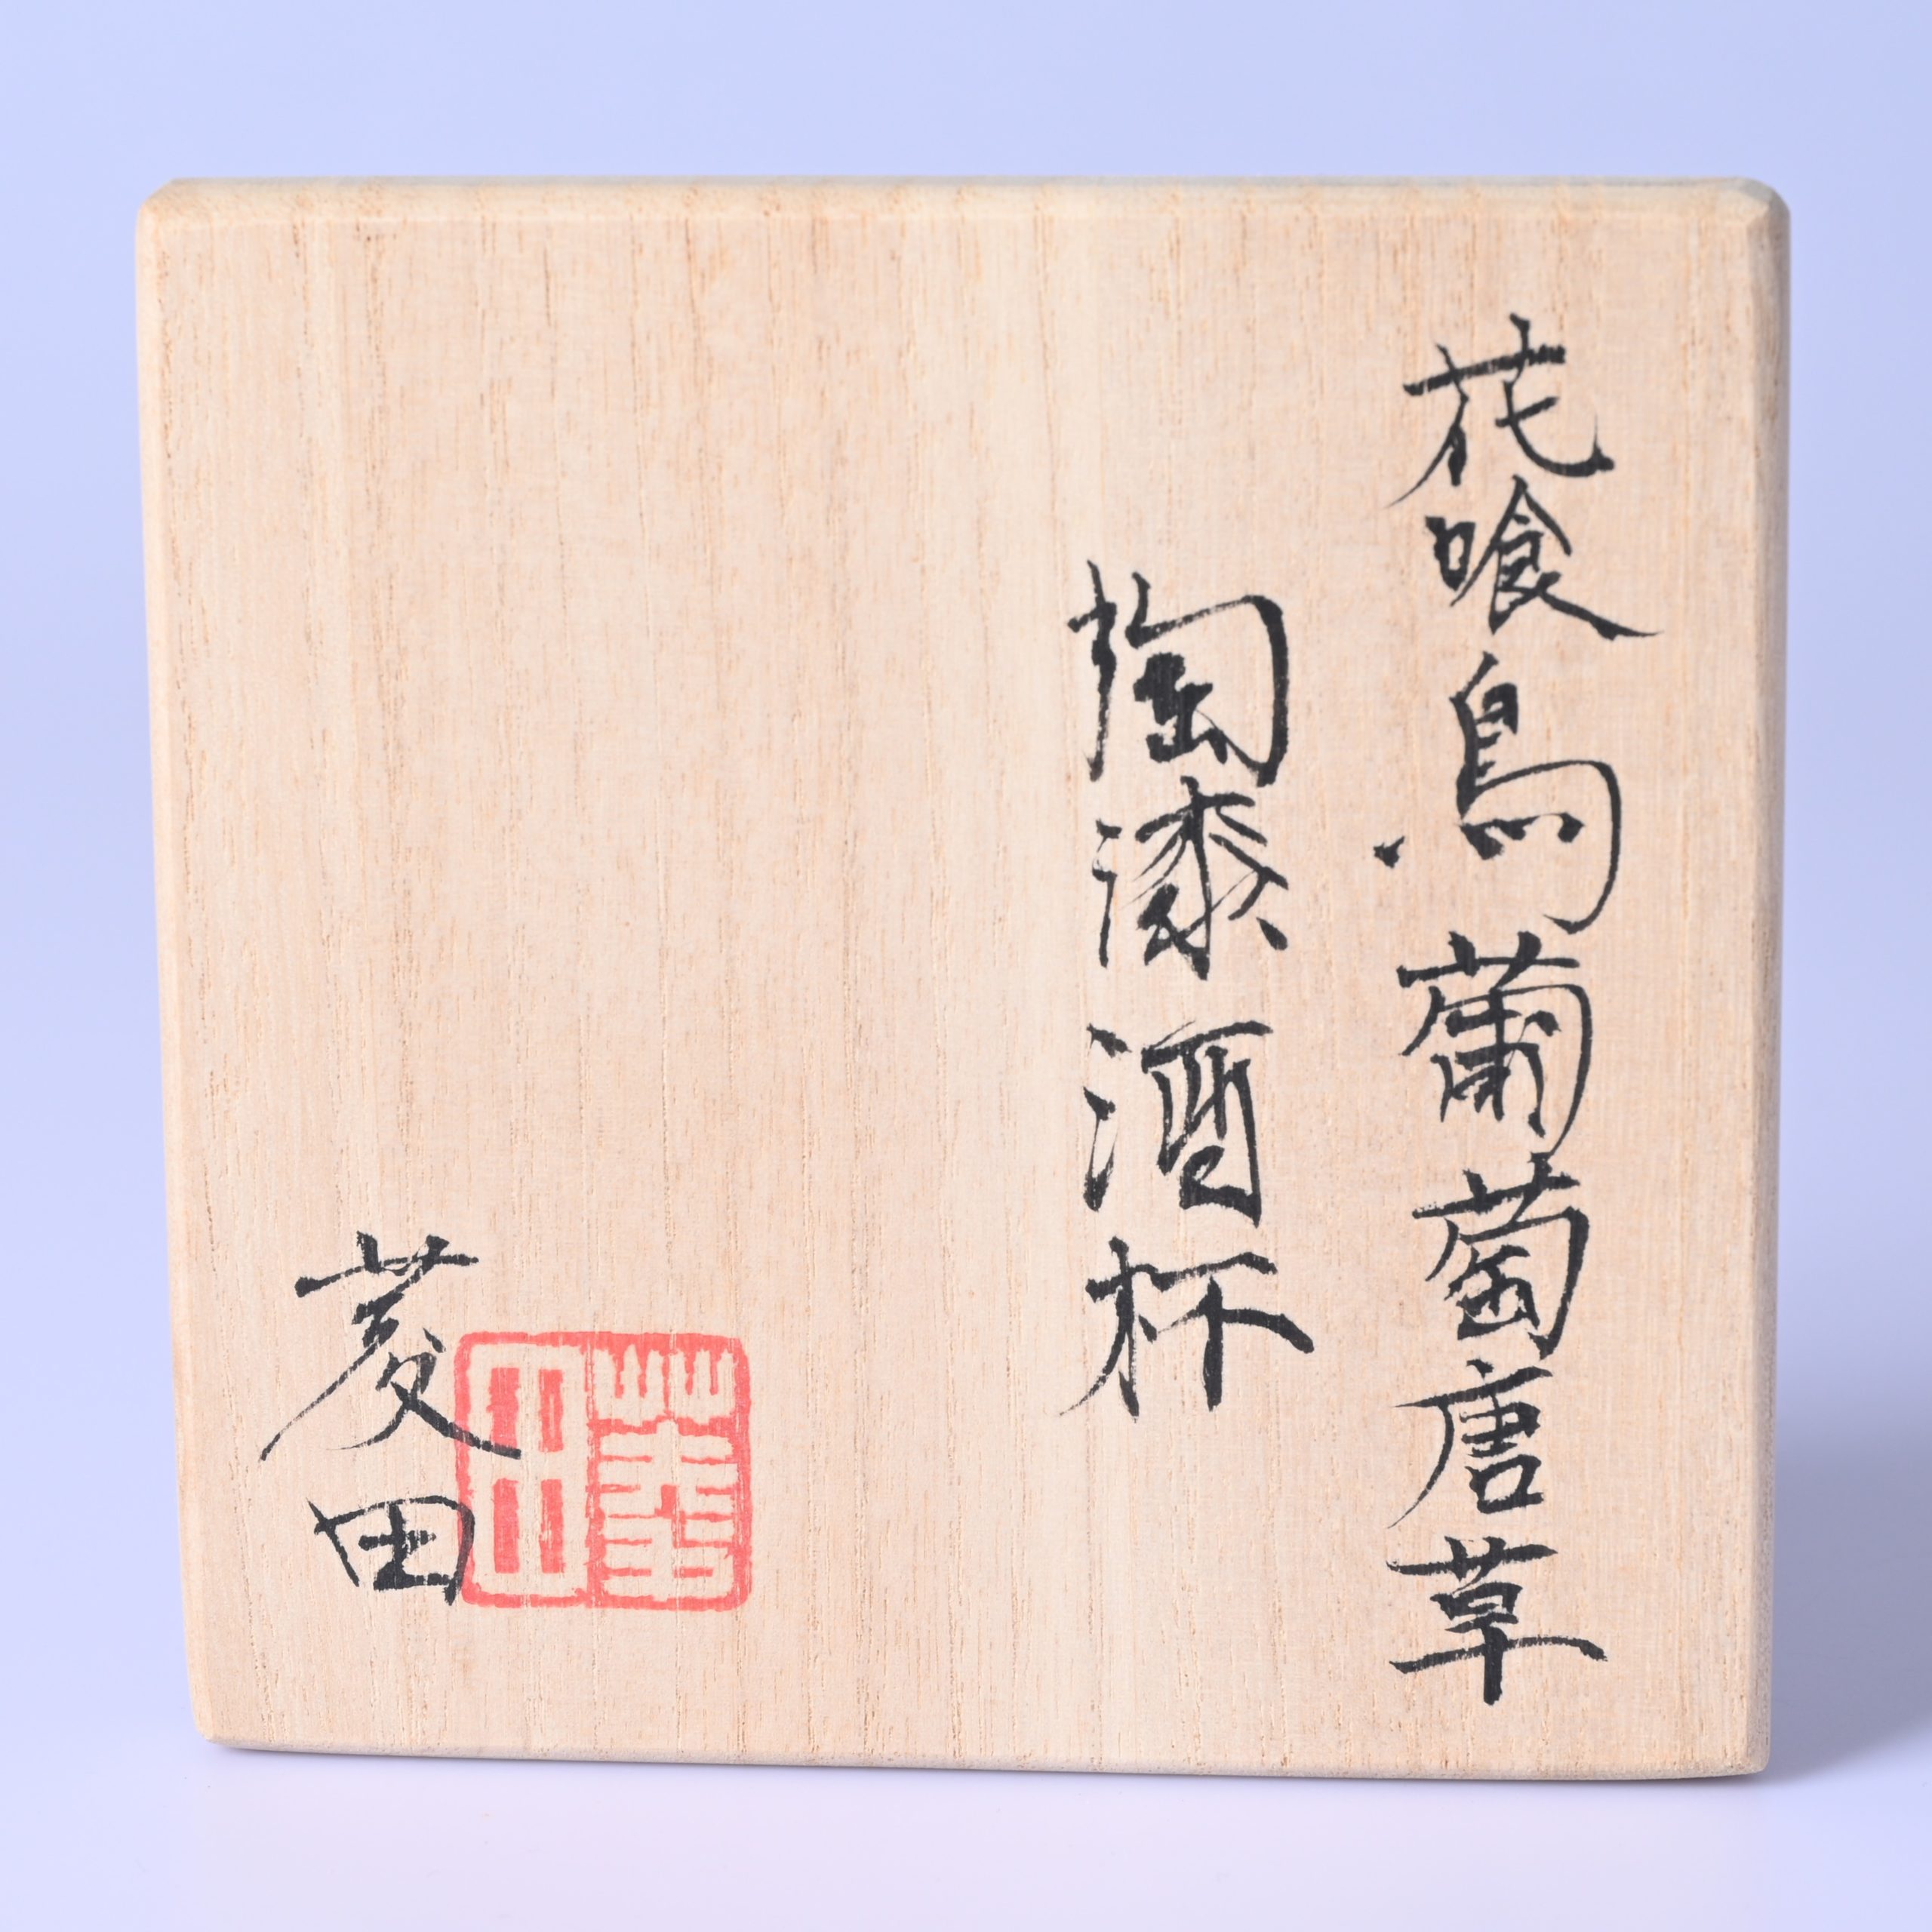 花喰鳥葡萄唐草
陶漆酒杯
菱田